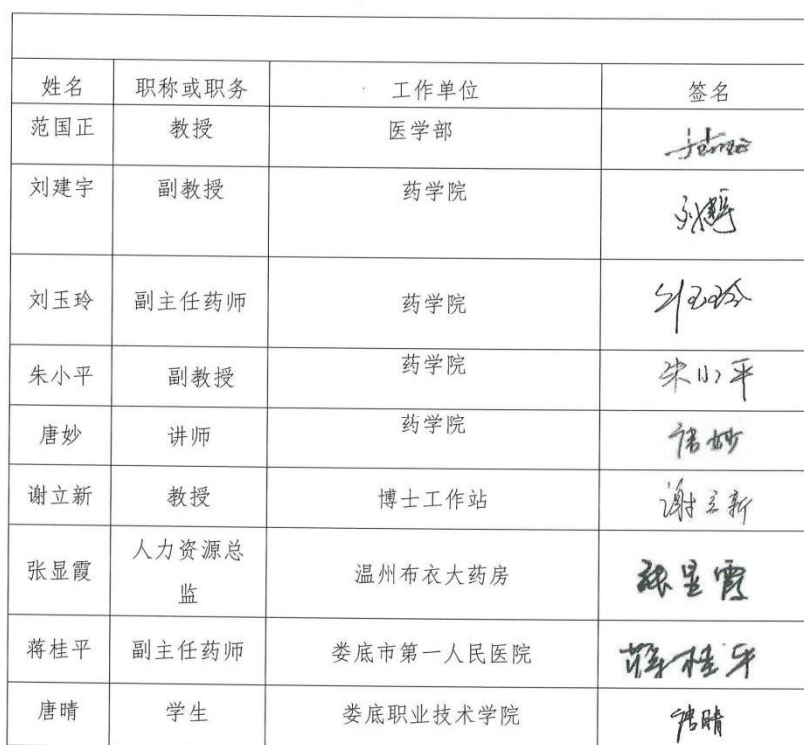 姓名 职称或职务 工作单位 签名
范国正 教授 医学部
刘建宇 副教授 药学院 刘建宇
刘玉玲 副主任药师 药学院 刘玉玲
朱小平 副教授 药学院 朱小平
唐妙 讲师 药学院 唐妙
谢立新 教授 博士工作站 谢立新
张显霞 人力资源总
监 温州布衣大药房 张显霞
蒋桂平 副主任药师 娄底市第一人民医院 蒋桂平
唐晴 学生 娄底职业技术学院 唐晴